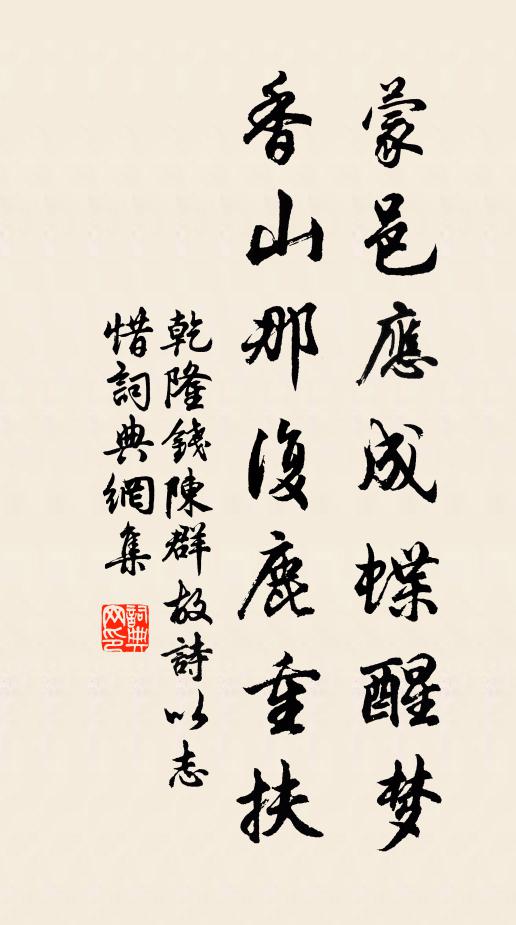 蒙邑應成蝶醒梦
香山那復鹿重扶
乾隆錢陳群故詩以志
惜詞典網集
詞典
网印